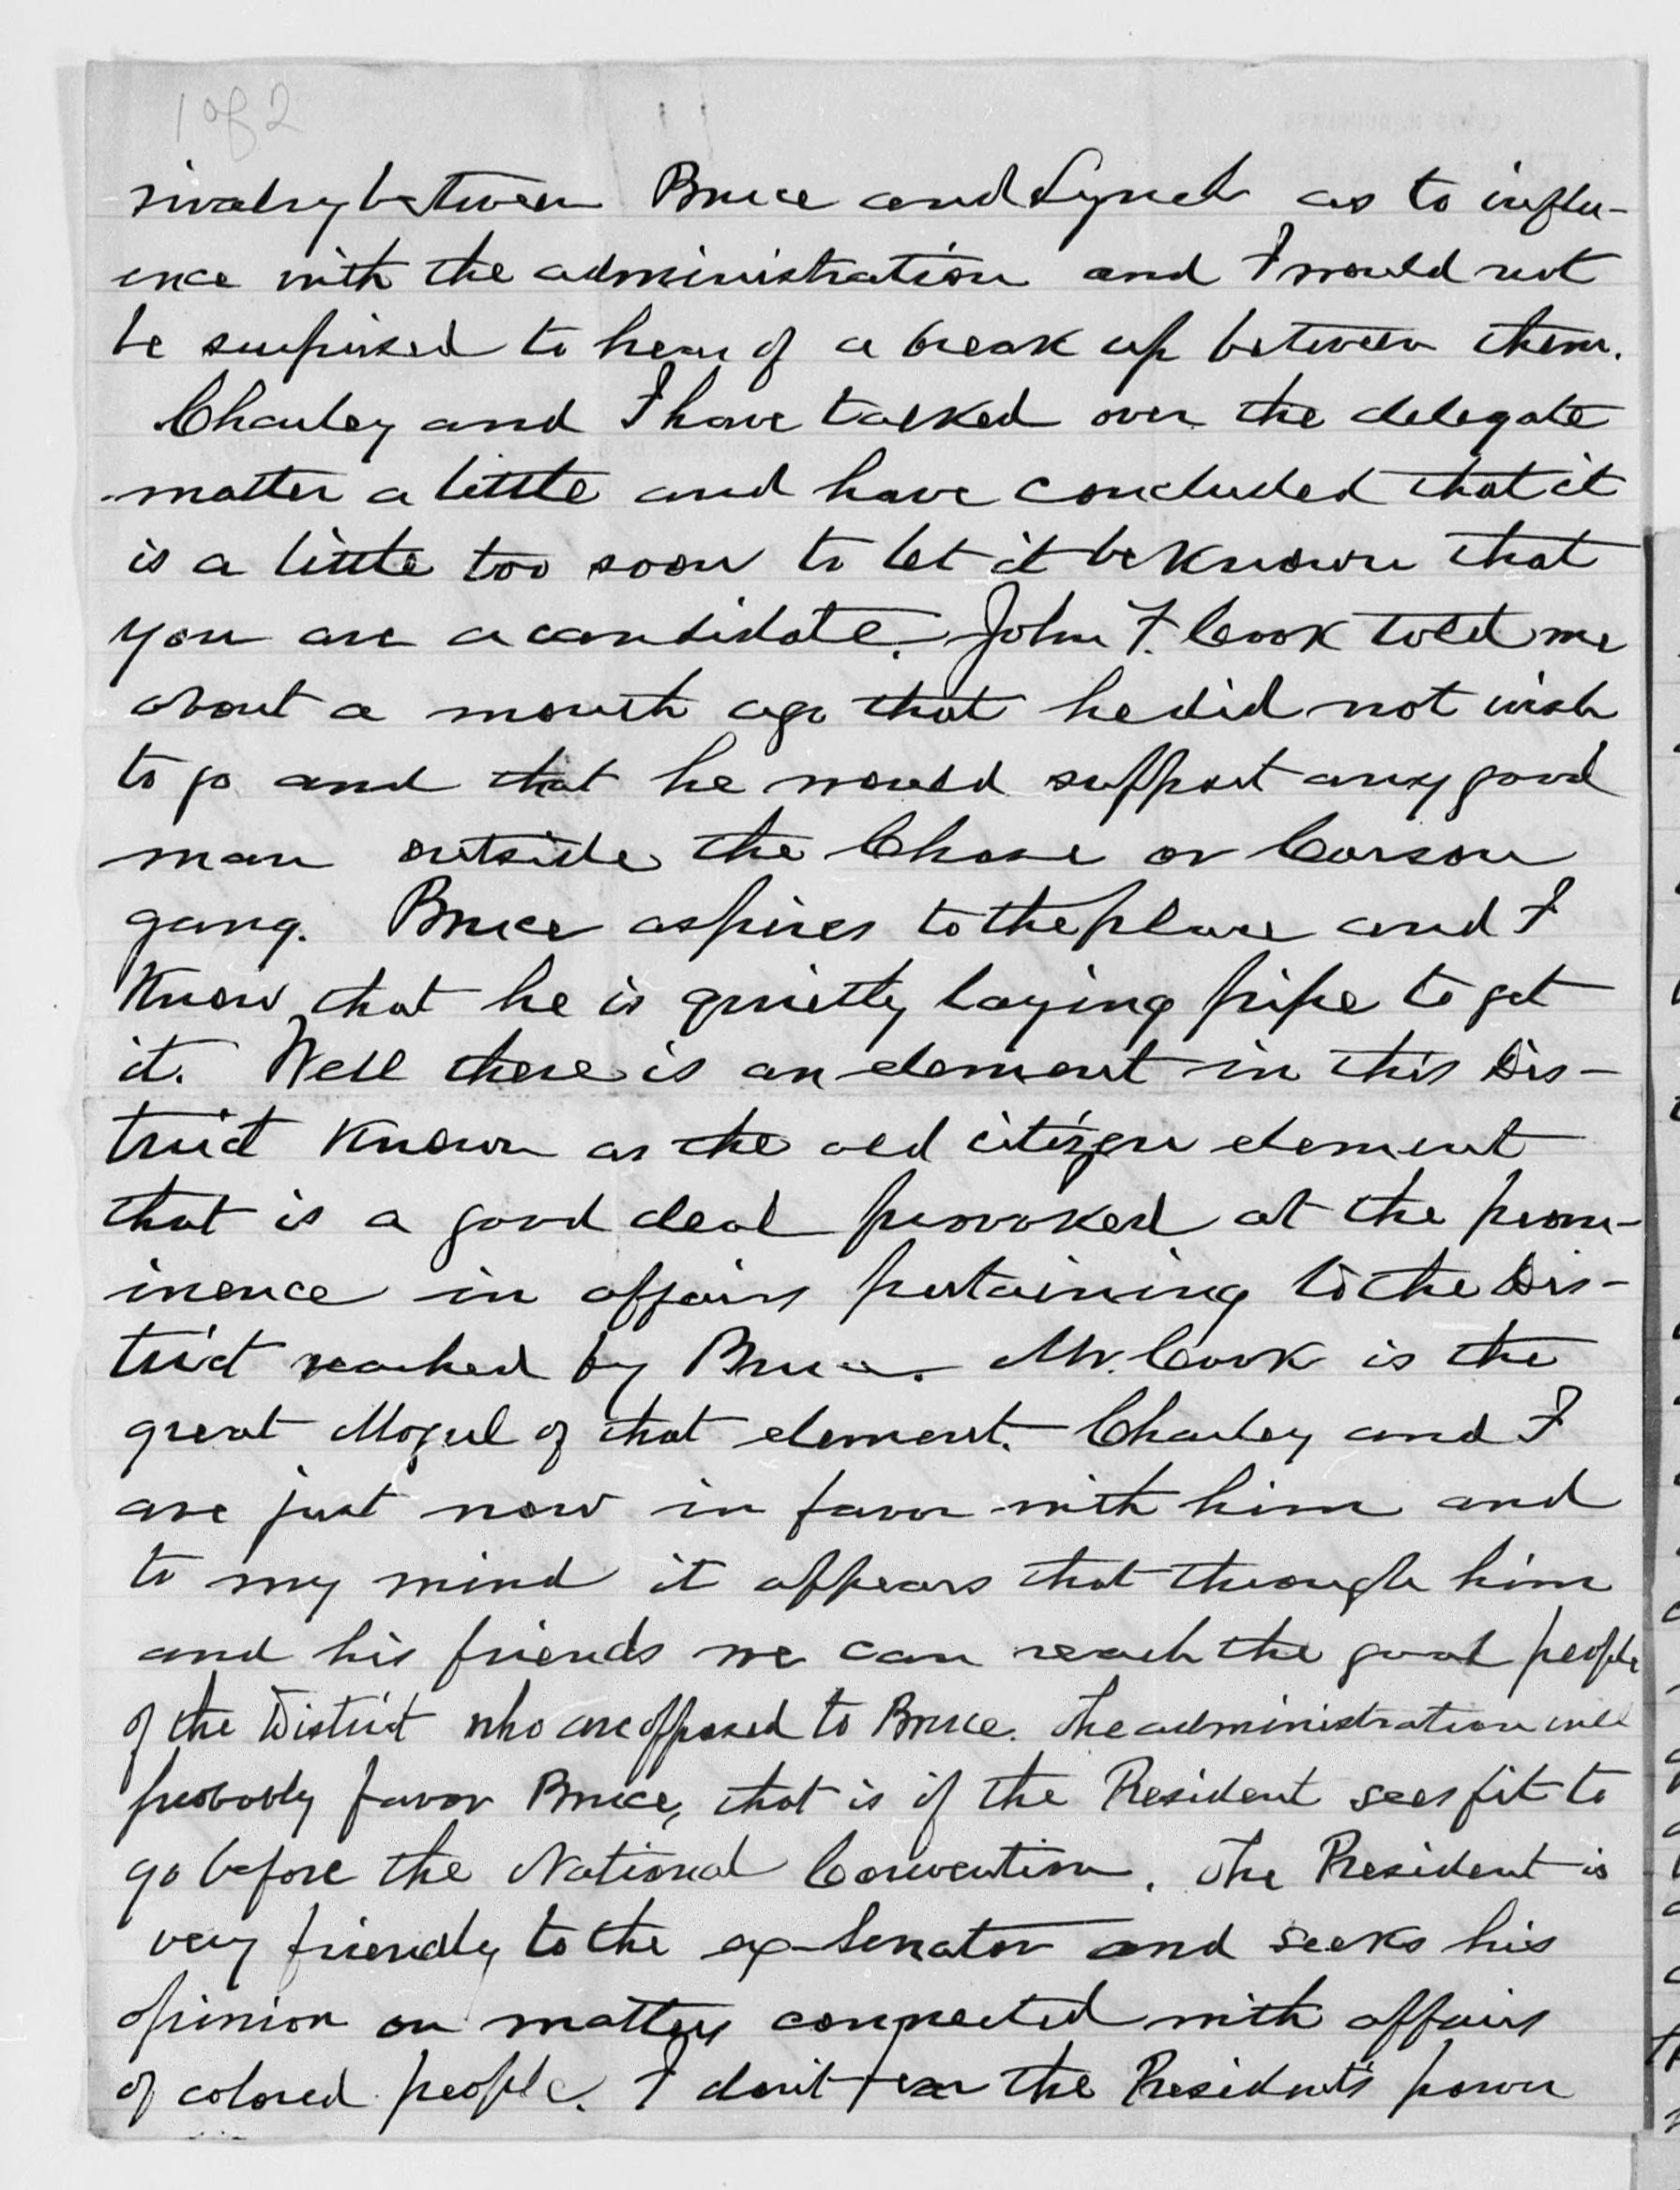 1 of 2
rivalry between Bruce and Lynch as to influ-
ence with the administration and I would not
be surprised to hear of a break up between them.
Charley and I have talked over the delegate
matter a little and have concluded that it
is a little too soon to let it be known that
you are a candidate. John F. Cook told me
about a month ago that he did not wish
to go and that he would support any good
man outside the Chase or Carson
gang. Bruce aspires to the place and I
know that he is quietly laying pipe to get
it. Well there is an element in this Dis-
trict known as the old citizen element
that is a good deal provoked at the prom-
inence in affairs pertaining to the Dis-
trict reached by Bruce. Mr. Cook is the
great Mogul of that element. Charley and I
are just now in favor with him and
to my mind it appears that through him
and his friends we can reach the good people
of the District who are opposed to Bruce. The administration will
probably favor Bruce, that is if the President sees fit to
go before the National Convention. The President is
very friendly to the ex-Senator and seeks his
opinion on matters connected with affairs
of colored people. I don't fear the President's power